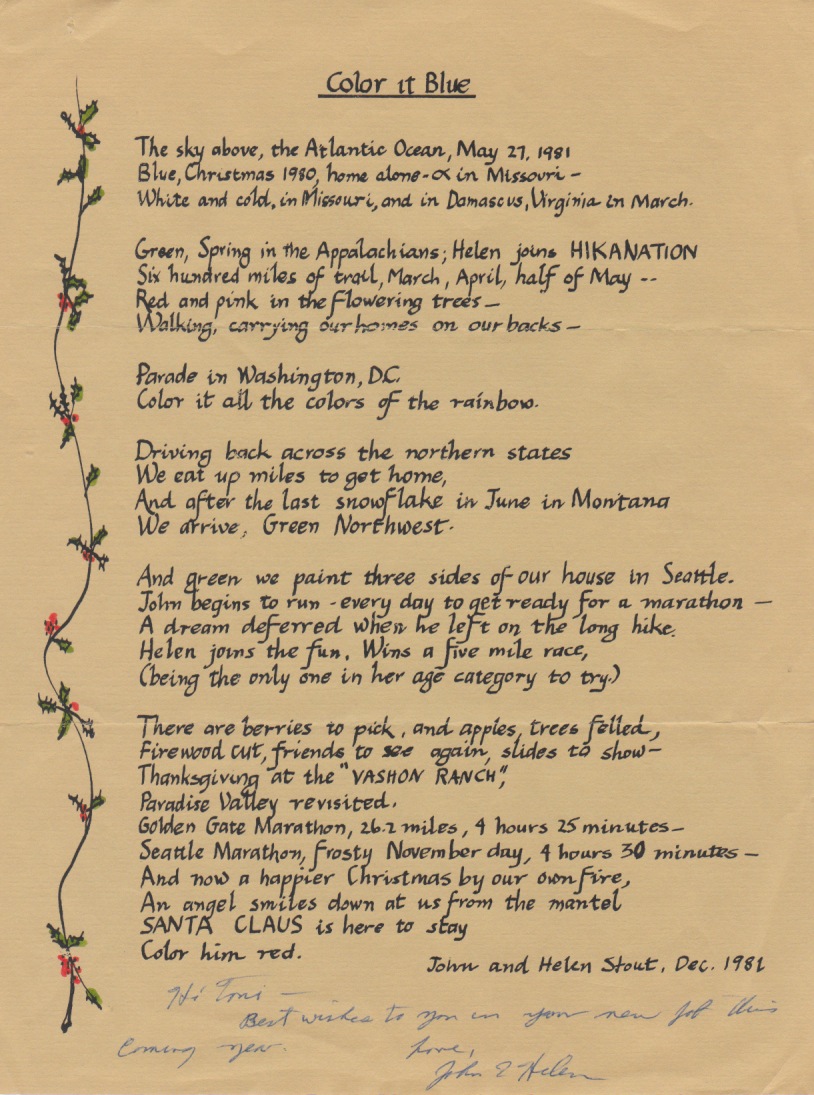 Color it Blue
The sky above, the Atlantic Ocean, May 27, 1981
Blue, Christmas 1980, home alone - in Missouri -
White and cold, in Missouri, and in Damascus, Virginia in March.
Green, Spring in the Appalachians; Helen joins HIKANATION
Six hundred miles of trail, March, April, half of May --
Red and pink in the flowering trees —
Walking, carrying our homes on our backs —
Parade in Washington, D.C.
Color it all the colors of the rainbow.
Driving back across the northern states
We eat up miles to get home,
And after the last snowflake in June in Montana
We arrive, Green Northwest.
And green we paint three sides of our house in Seattle.
John begins to run - every day to get ready for a marathon —
A dream deferred when he left on the long hike.
Helen joins the fun. Wins a five mile race,
(being the only one in her age category to try.)
There are berries to pick, and apples, trees felled,
Firewood cut, friends to see again, slides to show —
Thanksgiving at the "VASHON RANCH",
Paradise Valley revisited.
Golden Gate Marathon, 26.2 miles, 4 hours 25 minutes —
Seattle Marathon, frosty November day, 4 hours 30 minutes —
And now a happier Christmas by our own fire,
An angel smiles down at us from the mantel
SANTA CLAUS is here to stay
Color him red.
John and Helen Stout, Dec. 1981
Hi Toni —
Best wishes to you in your new job this
coming year. Love,
John & Helen